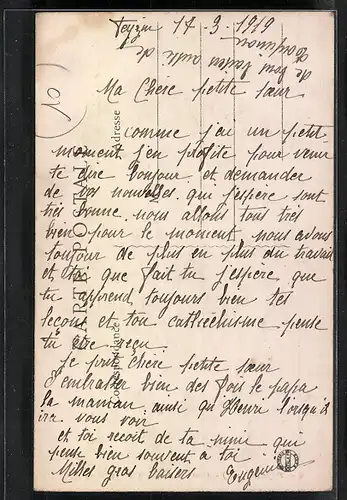 Feyzin 17-3-1919
Ma Chère petite sœur
comme j'ai un petit
moment j'en profite pour venir
te dire bonjour et demander
de vos nouvelles qui j'espère sont
très bonne nous allons tous très
bien pour le moment nous avons
toujour de plus en plus du travail
et toi que fait tu j'espère que
tu apprend toujours bien tes
leçons et ton cathéchisme pense
tu être reçu
je prie chère petite sœur
d'embrasser bien des fois le papa
la maman ainsi qu Henri lorsqu'il
ira vous voir
et toi recoit de ta mimi qui
pense bien souvent a toi
Milles gros baisers Eugenie
de gros baisers
CARTE POSTALE
Correspondance
Adresse
10